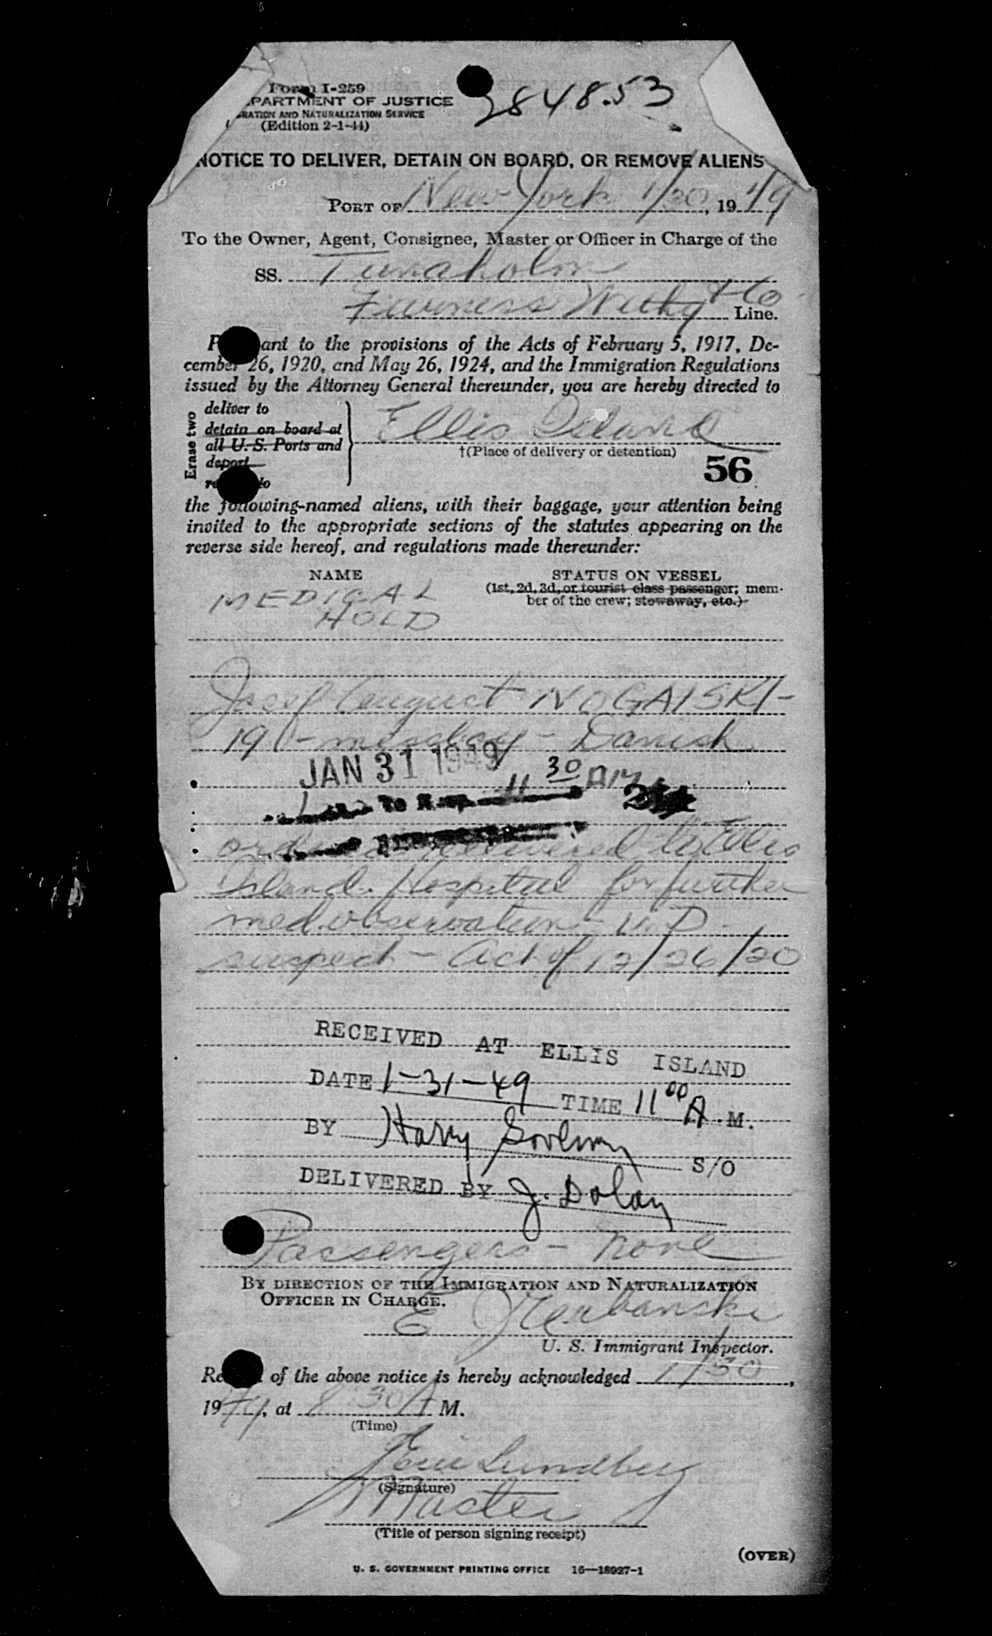 Form I-259
PARTMENT OF JUSTICE
RATION AND NATURALIZATION SERVICE
(Edition 2-1-44)
2848.53
NOTICE TO DELIVER, DETAIN ON BOARD, OR REMOVE ALIENS
PORT OF New York 1/30, 1949
To the Owner, Agent, Consignee, Master or Officer in Charge of the
SS. Tunaholm
Furness Withy & Co Line.
P ant to the provisions of the Acts of February 5, 1917, De-
cember 26, 1920, and May 26, 1924, and the Immigration Regulations
issued by the Attorney General thereunder, you are hereby directed to
Erase two
deliver to
detain on board at
all U. S. Ports and
deport
re to
Ellis Island
†(Place of delivery or detention)
56
the following-named aliens, with their baggage, your attention being
invited to the appropriate sections of the statutes appearing on the
reverse side hereof, and regulations made thereunder:
NAME STATUS ON VESSEL
(1st, 2d, 3d, or tourist class passenger; mem-
ber of the crew; stowaway, etc.)
MEDICAL
HOLD
Josef August NOGAISKI-
19 - messboy - Danish
JAN 31 1949 11 30 AM
delivered to Ellis
Island Hospital for further
med. observation - V.D.
suspect - Act of 12/26/20
RECEIVED AT ELLIS ISLAND
DATE 1-31-49 TIME 11 00 A.M.
BY Harry S/O
DELIVERED BY J. Dolan
Passengers - none
BY DIRECTION OF THE IMMIGRATION AND NATURALIZATION
OFFICER IN CHARGE.
E
U. S. Immigrant Inspector.
Re of the above notice is hereby acknowledged 1/30,
1949, at 8 30 A M.
(Time)
Lundberg
(Signature)
Master
(Title of person signing receipt)
(OVER)
U. S. GOVERNMENT PRINTING OFFICE 16—18927-1